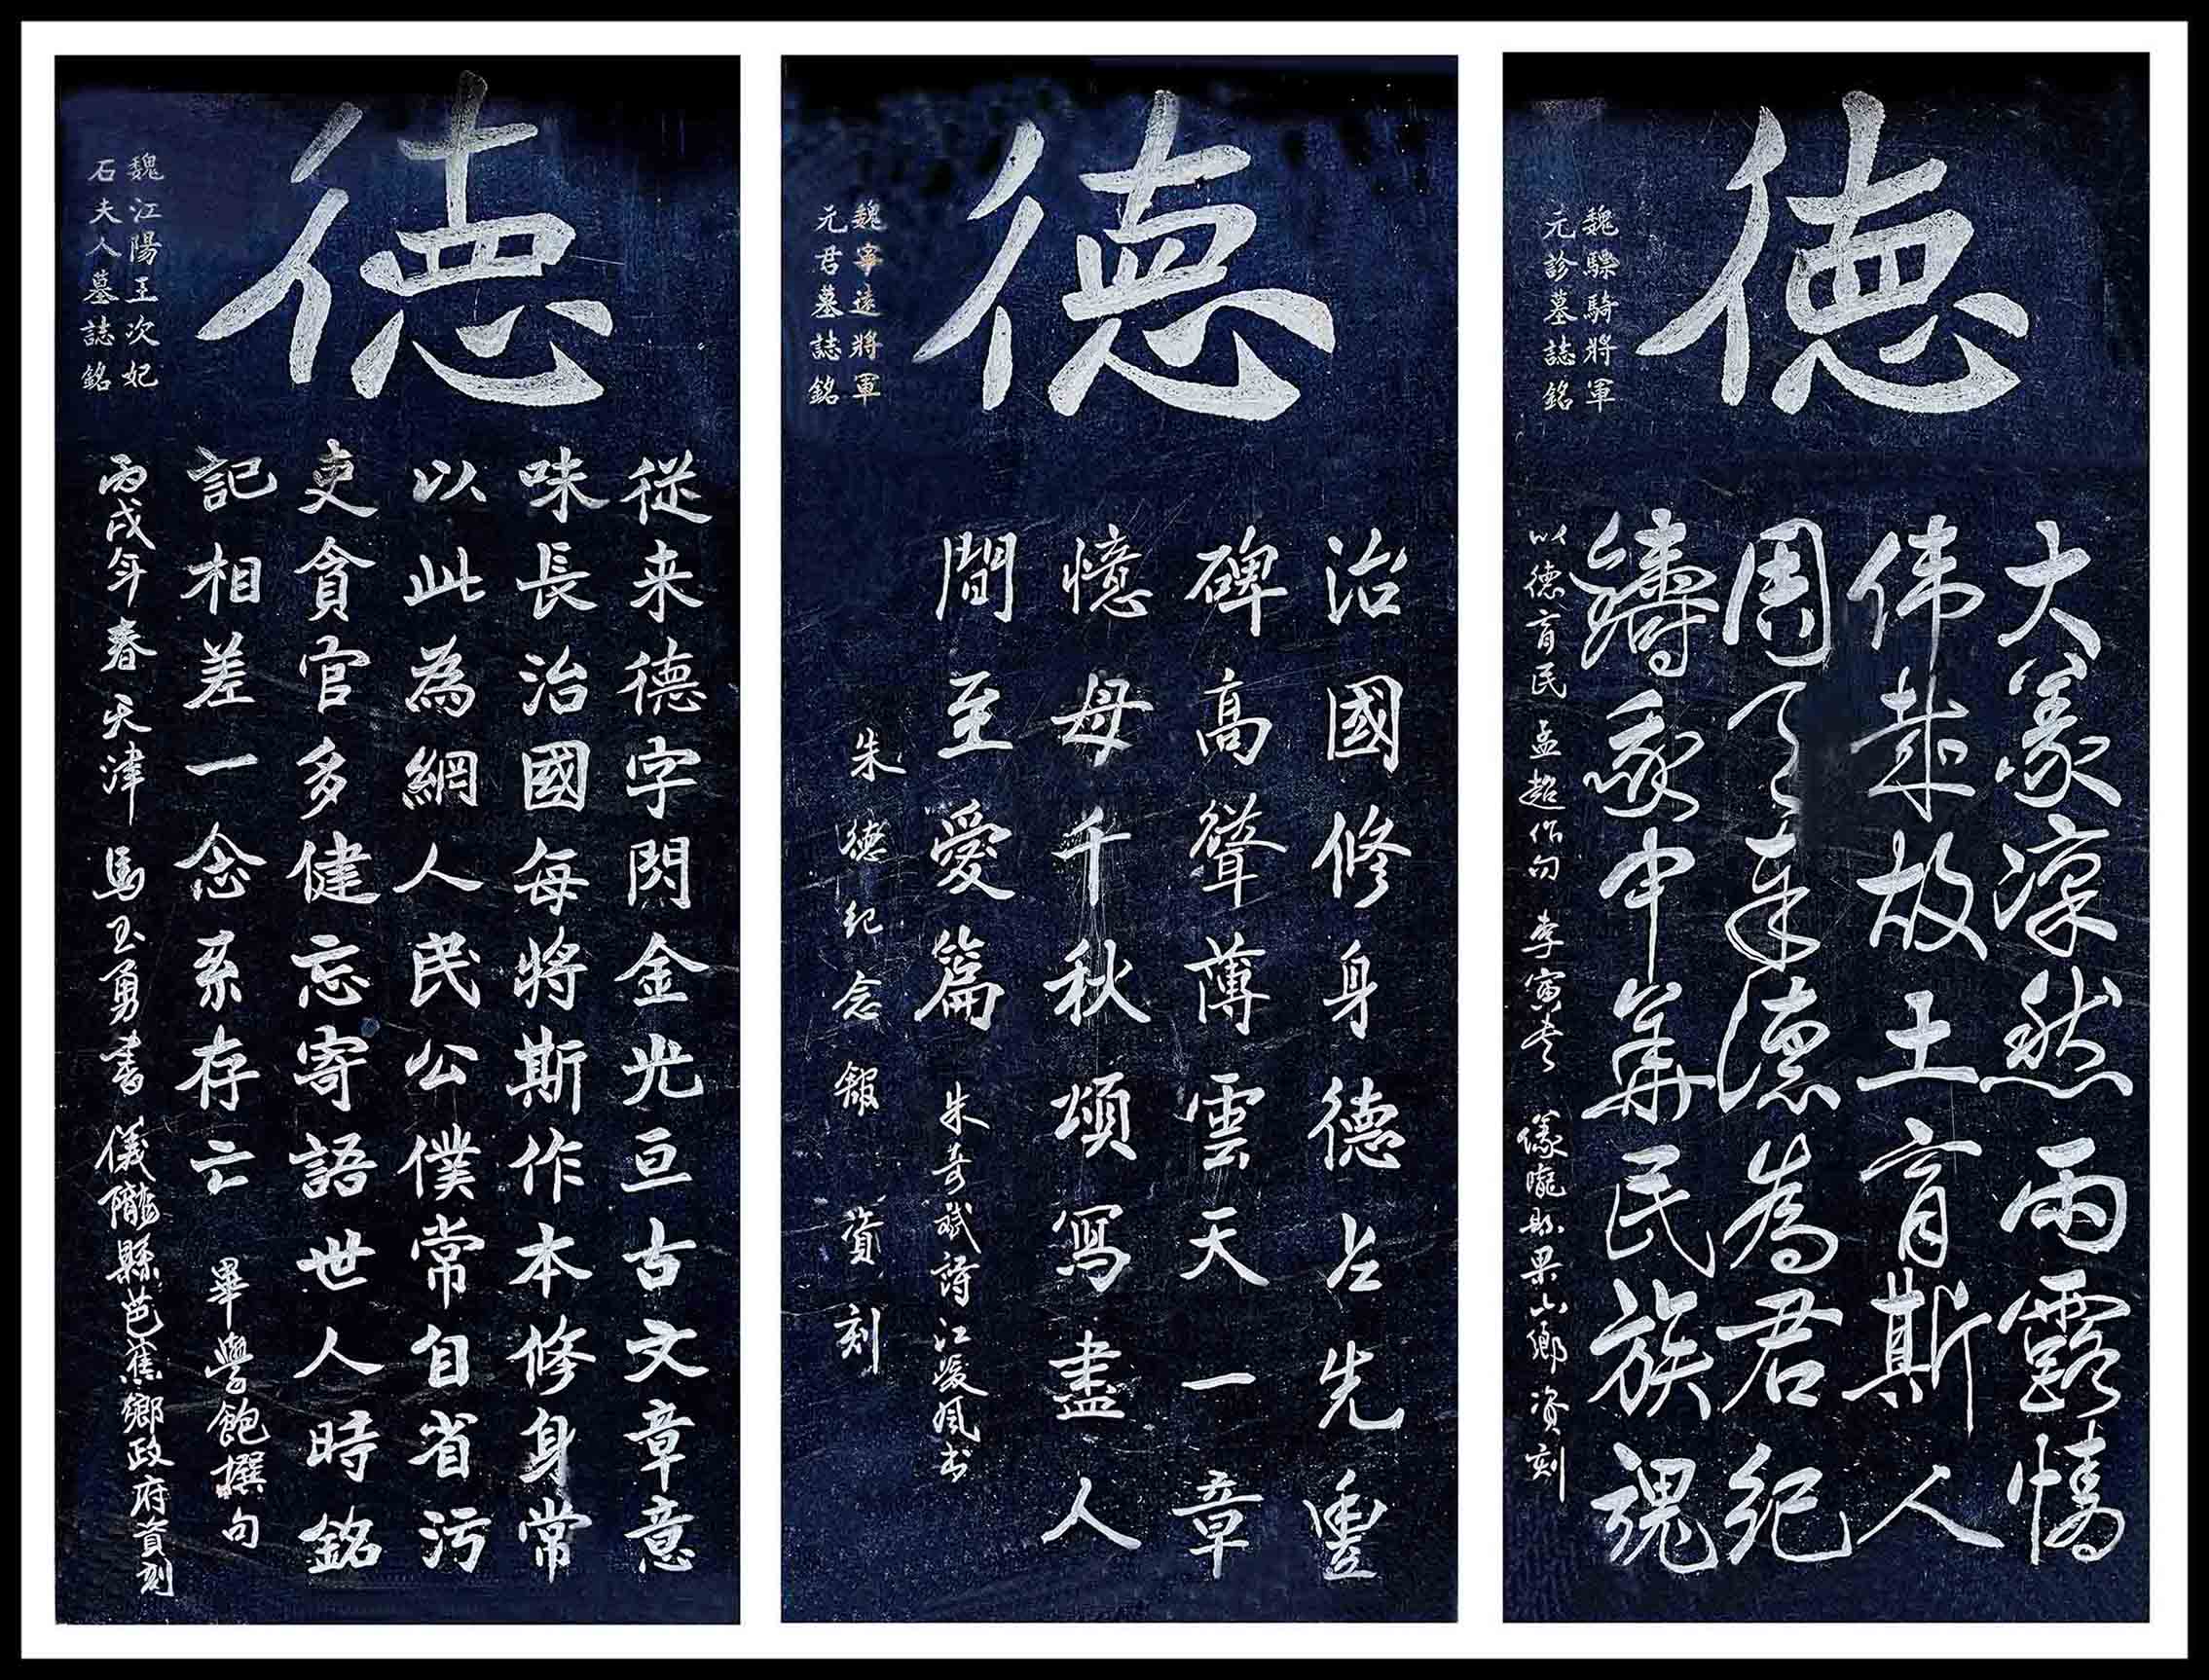 德
魏驃騎將軍
元診墓誌銘
大義凛然雨露
伟哉故土育斯人
周天奉德為君纪
鑄我中華民族魂
以德育民 孟超作句 李寅书 儀隴縣果山鄉 资刻
德
魏寧遠將軍
元君墓誌銘
治國修身德占先豐
碑高聳薄雲天一章
憶母千秋頌寫盡人
間至愛篇 朱奇斌詩 江凌风书
朱德纪念館 資刻
德
魏江陽王次妃
石夫人墓誌銘
從来德字閃金光亘古文章意
味長治國每將斯作本修身常
以此為綱人民公僕常自省污
吏貪官多健忘寄語世人時銘
記相差一念系存亡 畢學飽撰句
丙戌年春 天津 馬玉勇書 儀隴縣芭蕉鄉政府資刻